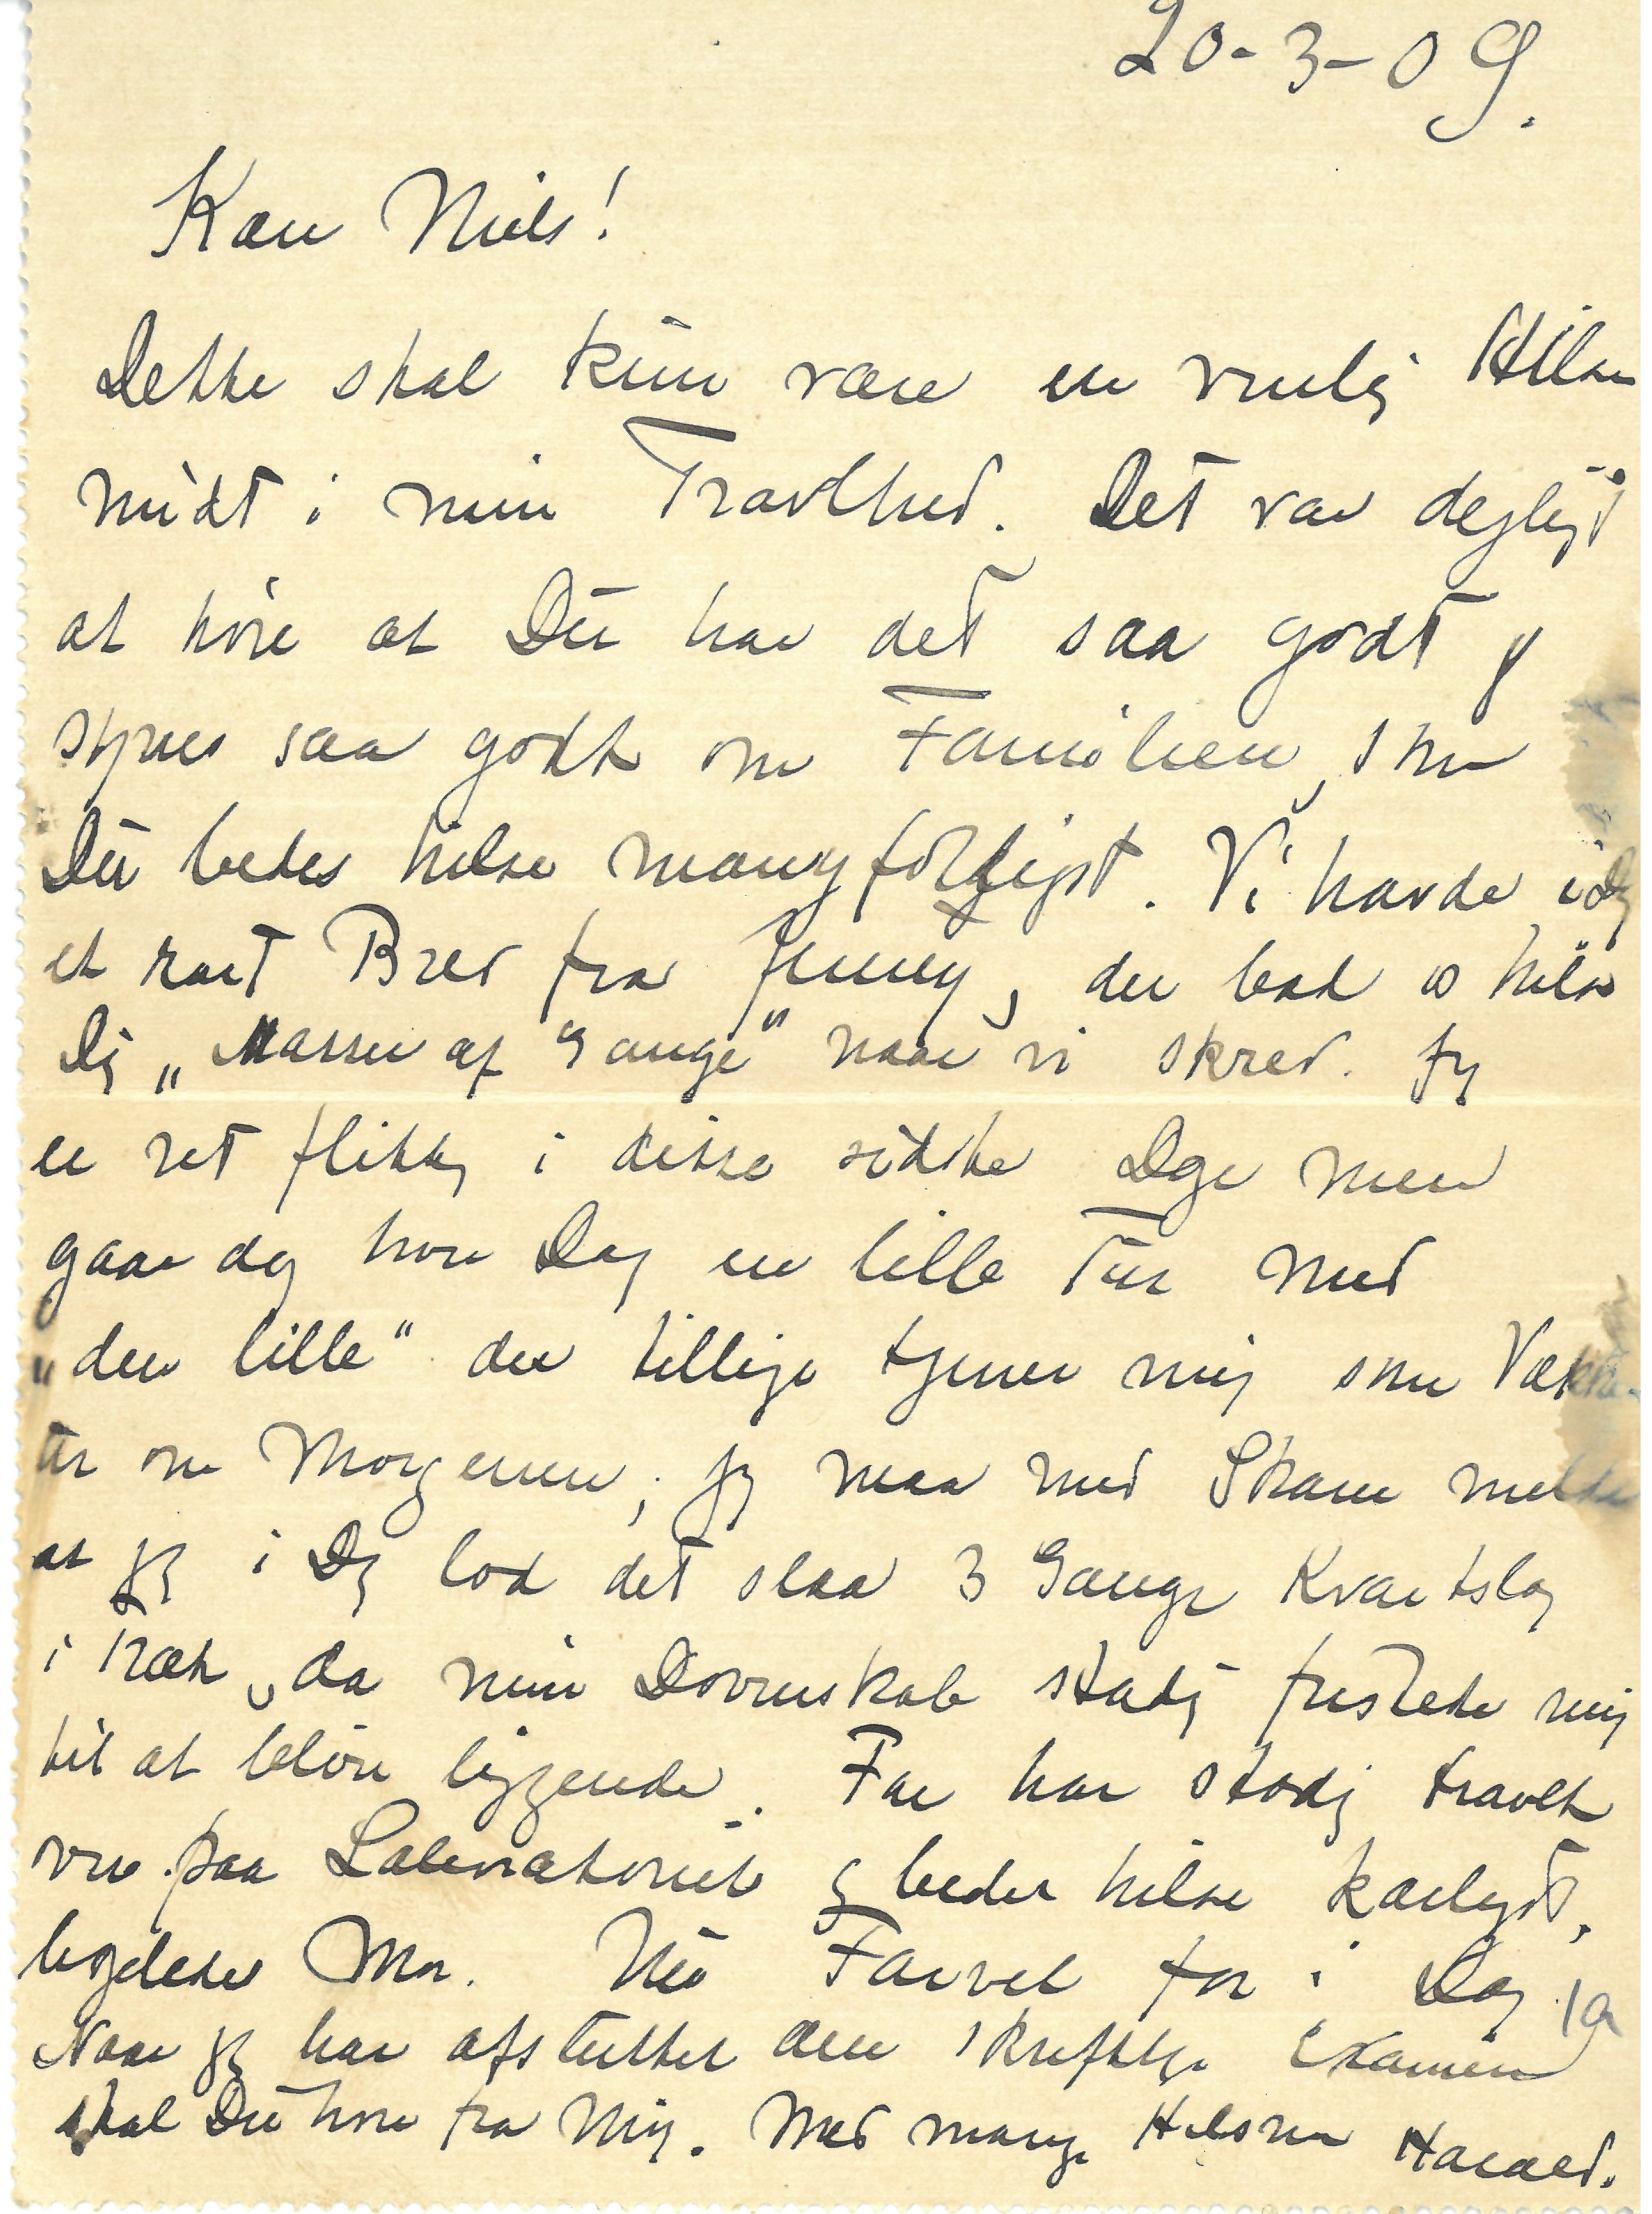 20-3-09.
Kære Niels!
Dette skal kun være en venlig Hilsen
midt i min Travlhed. Det var dejligt
at høre at Du har det saa godt og
synes saa godt om Familien, som
Du bedes hilse mangfoldigst. Vi havde i Dag
et rart Brev fra Jenny, der bad os hilse
Dig „Masser af Gange“ naar vi skrev. Jeg
er ret flittig i disse sidste Dage men
gaar dog hver Dag en lille Tur med
„den lille“ der tillige tjener mig som Vække-
ur om Morgenen; jeg maa med Skam melde
at jeg i Dag lod det slaa 3 Gange Kvartslag
i Træk, da min Dovenskab stadig fristede mig
til at blive liggende. Far har stadig travlt
ovre paa Laboratoriet og beder hilse kærligst,
ligeledes Mor. Nu Farvel for i Dag
Naar jeg har afsluttet den skriftlige Examen
skal Du høre fra mig. Med mange Hilsner Harald.